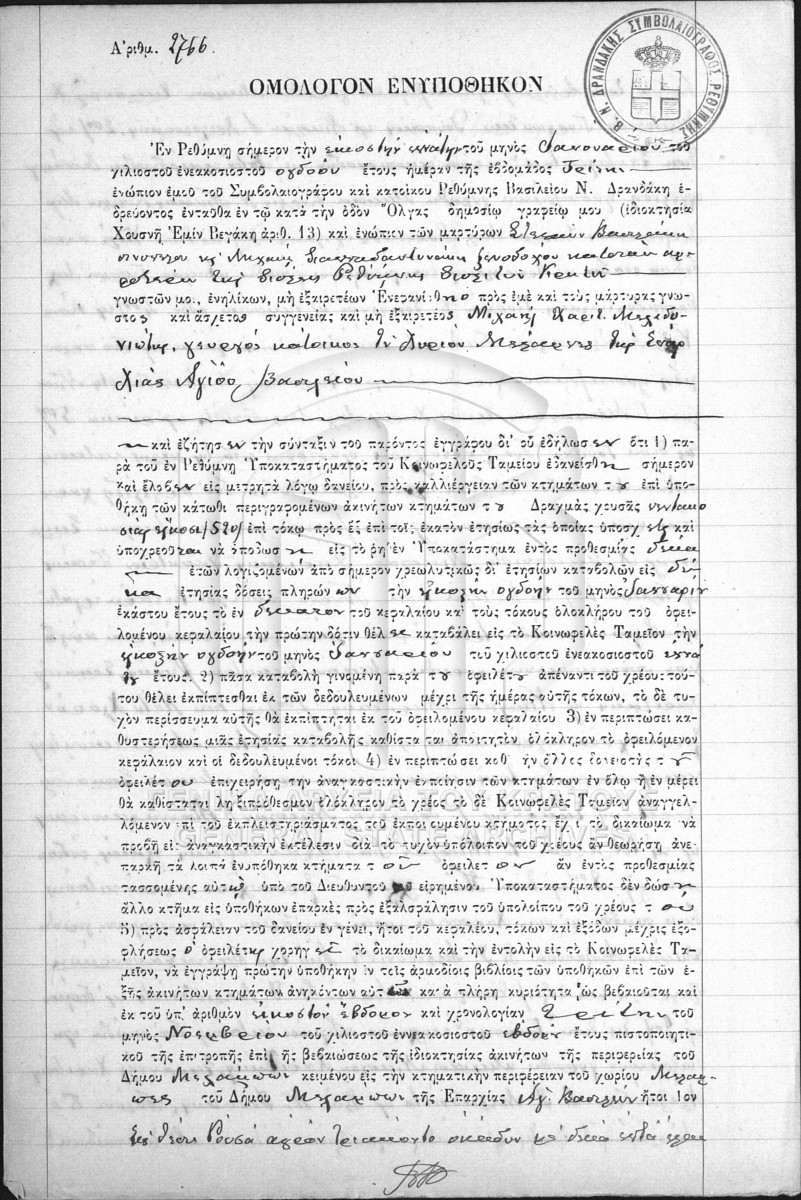 Ἀριθμ. 2766.
Β. Ν. ΔΡΑΝΔΑΚΗΣ ΣΥΜΒΟΛΑΙΟΓΡΑΦΟΣ ΡΕΘΥΜΝΗΣ
ΟΜΟΛΟΓΟΝ ΕΝΥΠΟΘΗΚΟΝ
Ἐν Ρεθύμνῃ σήμερον τὴν εἰκοστὴν ἐνάτην τοῦ μηνὸς Ἰανουαρίου τοῦ
χιλιοστοῦ ἐνεακοσιοστοῦ ὀγδόου ἔτους ἡμέραν τῆς ἑβδομάδος Τρίτην
ἐνώπιον ἐμοῦ τοῦ Συμβολαιογράφου καὶ κατοίκου Ρεθύμνης Βασιλείου Ν. Δρανδάκη ἑ-
δρεύοντος ἐνταῦθα ἐν τῷ κατὰ τὴν ὁδὸν Ὄλγας δημοσίῳ γραφείῳ μου (ἰδιοκτησία
Χουσνῆ Ἐμὶν Βεγάκη ἀριθ. 13) καὶ ἐνώπιον τῶν μαρτύρων Στεφάνου
καὶ Μιχαὴλ ξενοδόχου κατοίκων ἀμ-
φοτέρων τῆς πόλεως Ρεθύμνης
γνωστῶν μοι, ἐνηλίκων, μὴ ἐξαιρετέων Ἐνεφανίσθη ὁ πρὸς ἐμὲ καὶ τοὺς μάρτυρας γνω-
στος καὶ ἄσχετος συγγενείας καὶ μὴ ἐξαιρετέος Μιχαὴλ Χαρι. Μελιδο-
νιώτης, γεωργὸς κάτοικος τοῦ χωρίου Μελάμπες τῆς Ἐπαρ
χίας Ἁγίου Βασιλείου
καὶ ἐζήτησεν τὴν σύνταξιν τοῦ παρόντος ἐγγράφου δι' οὗ ἐδήλωσεν ὅτι 1) πα-
ρὰ τοῦ ἐν Ρεθύμνῃ Ὑποκαταστήματος τοῦ Κοινωφελοῦς Ταμείου ἐδανείσθη σήμερον
καὶ ἔλαβεν εἰς μετρητὰ λόγῳ δανείου, πρὸς καλλιέργειαν τῶν κτημάτων του ἐπὶ ὑπο-
θήκῃ τῶν κάτωθι περιγραφομένων ἀκινήτων κτημάτων του Δραχμὰς χρυσᾶς πεντακο
σίας εἴκοσι (520) ἐπὶ τόκῳ πρὸς ἓξ ἐπὶ τοῖς ἑκατὸν ἐτησίως τὰς ὁποίας ὑποσχεῖται καὶ
ὑποχρεοῦται νὰ ἀποδώσῃ εἰς τὸ ῥηθὲν Ὑποκατάστημα ἐντὸς προθεσμίας δέκα
ἐτῶν λογιζομένων ἀπὸ σήμερον χρεωλυτικῶς δι' ἐτησίων καταβολῶν εἰς δέ
κα ἐτησίας δόσεις πληρών ων τὴν εἰκοστὴν ὀγδόην τοῦ μηνὸς Ἰανουαρίου
ἑκάστου ἔτους τὸ ἓν δέκατον τοῦ κεφαλαίου καὶ τοὺς τόκους ὁλοκλήρου τοῦ ὀφει-
λομένου κεφαλαίου τὴν πρώτην δόσιν θέλει καταβάλει εἰς τὸ Κοινωφελὲς Ταμεῖον τὴν
εἰκοστὴν ὀγδόην τοῦ μηνὸς Ἰανουαρίου τοῦ χιλιοστοῦ ἐνεακοσιοστοῦ ἐνά
του ἔτους. 2) πᾶσα καταβολὴ γινομένη παρὰ τοῦ ὀφειλέτου ἀπέναντι τοῦ χρέους τού-
του θέλει ἐκπίπτεσθαι ἐκ τῶν δεδουλευμένων μέχρι τῆς ἡμέρας αὐτῆς τόκων, τὸ δὲ τυ-
χὸν περίσσευμα αὐτῆς θὰ ἐκπίπτηται ἐκ τοῦ ὀφειλομένου κεφαλαίου 3) ἐν περιπτώσει κα-
θυστερήσεως μιᾶς ἐτησίας καταβολῆς καθίσταται ἀπαιτητὸν ὁλόκληρον τὸ ὀφειλόμενον
κεφάλαιον καὶ οἱ δεδουλευμένοι τόκοι 4) ἐν περιπτώσει καθ' ἣν ἄλλος δανειστὴς τοῦ
ὀφειλέτου ἐπιχειρήσῃ τὴν ἀναγκαστικὴν ἐκποίησιν τῶν κτημάτων ἐν ὅλῳ ἢ ἐν μέρει
θὰ καθίσταται ληξιπρόθεσμον ὁλόκληρον τὸ χρέος τὸ δὲ Κοινωφελὲς Ταμεῖον ἀναγγελ-
λόμενον ἐπὶ τοῦ ἐκπλειστηριάσματος τοῦ ἐκποιουμένου κτήματος ἔχει τὸ δικαίωμα νὰ
προβῇ εἰς ἀναγκαστικὴν ἐκτέλεσιν διὰ τὸ τυχὸν ὑπόλοιπον τοῦ χρέους ἂν θεωρήσῃ ἀνε-
παρκῆ τὰ λοιπὰ ἐνυπόθηκα κτήματα τοῦ ὀφειλέτου ἂν ἐντὸς προθεσμίας
τασσομένης αὐτῷ ὑπὸ τοῦ Διευθυντοῦ τοῦ εἰρημένου Ὑποκαταστήματος δὲν δώσῃ
ἄλλο κτῆμα εἰς ὑποθήκων ἐπαρκὲς πρὸς ἐξασφάλησιν τοῦ ὑπολοίπου τοῦ χρέους του
5) πρὸς ἀσφάλειαν τοῦ δανείου ἐν γένει, ἤτοι τοῦ κεφαλαίου, τόκων καὶ ἐξόδων μέχρις ἐξο-
φλήσεως ὁ ὀφειλέτης χορηγεῖ τὸ δικαίωμα καὶ τὴν ἐντολὴν εἰς τὸ Κοινωφελὲς Τα-
μεῖον, νὰ ἐγγράψῃ πρώτην ὑποθήκην ἐν τοῖς ἁρμοδίοις βιβλίοις τῶν ὑποθηκῶν ἐπὶ τῶν ἑ-
ξῆς ἀκινήτων κτημάτων ἀνηκόντων αὐτῷ κατὰ πλήρη κυριότητα ὡς βεβαιοῦται καὶ
ἐκ τοῦ ὑπ' ἀριθμὸν εἰκοστὸν ἕβδομον καὶ χρονολογίαν τρίτην τοῦ
μηνὸς Νοεμβρίου τοῦ χιλιοστοῦ ἐννεακοσιοστοῦ ἑβδόμου ἔτους πιστοποιητι-
κοῦ τῆς ἐπιτροπῆς ἐπὶ τῆς βεβαιώσεως τῆς ἰδιοκτησίας ἀκινήτων τῆς περιφερείας τοῦ
Δήμου Μελάμπων κειμένου εἰς τὴν κτηματικὴν περιφέρειαν τοῦ χωρίου Μελάμ-
πες τοῦ Δήμου Μελάμπων τῆς Ἐπαρχίας Ἁγ. Βασιλείου ἤτοι 1ον
Εἰς θέσιν Ρουσὰ ἀγρὸν τριάκοντα μὲ δέκα ἑπτὰ
ΓΕΝΙΚΑ ΑΡΧΕΙΑ ΤΟΥ ΚΡΑΤΟΥΣ
GENERAL STATE ARCHIVES